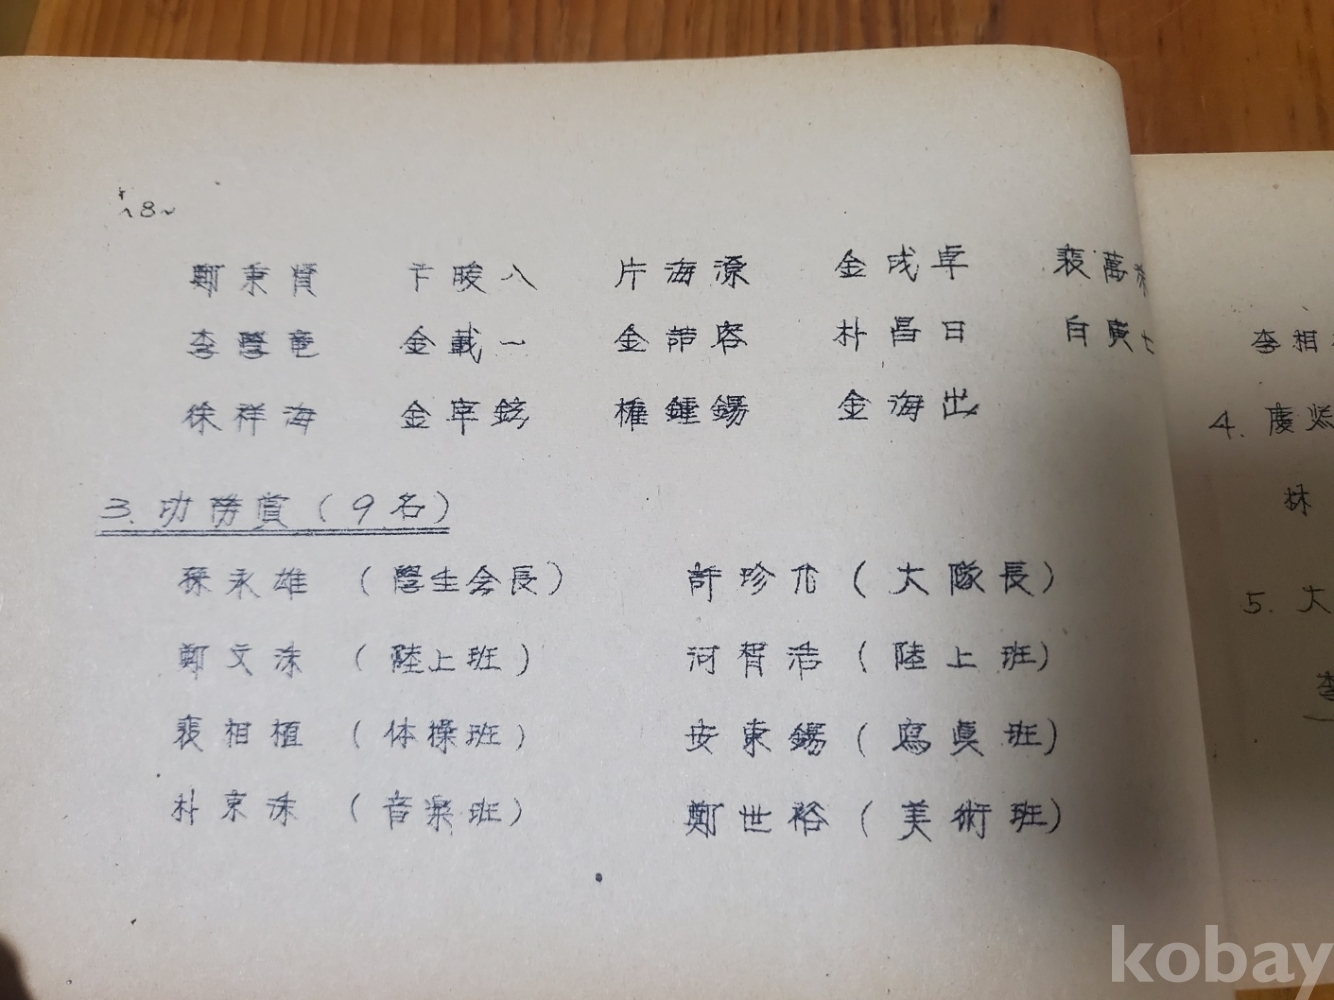 ~8~
鄭秉賢 卞晙八 片海源 金成卓 裵萬
李學竜 金載一 金詰容 朴昌日 白寅
徐祥海 金宰鉉 權鍾錫 金海出
3. 功勞賞 (9名)
孫永雄 (學生会長) 許珍 (大隊長)
鄭文洙 (陸上班) 河智浩 (陸上班)
裵相植 (体操班) 安東錫 (寫眞班)
朴東洙 (音楽班) 鄭世裕 (美術班)
李相
4. 慶
林
5. 大
李
kobay